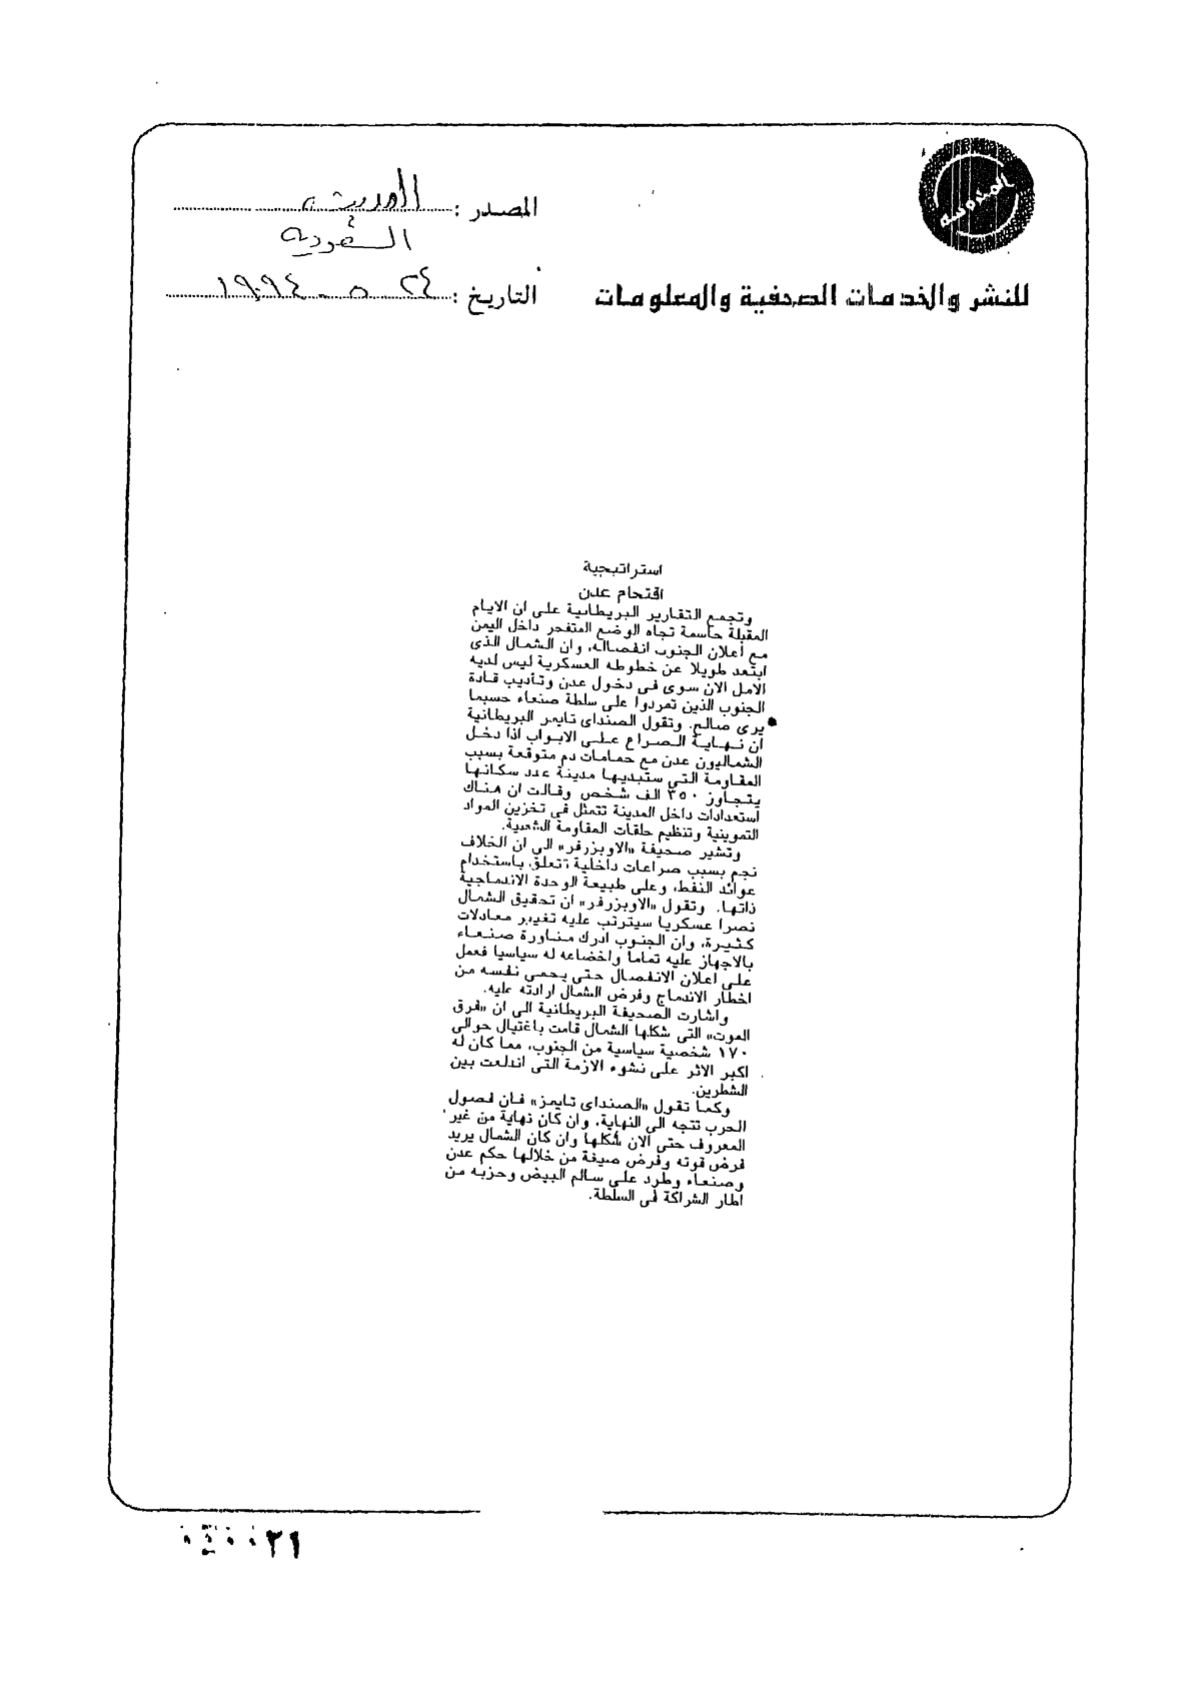 المدوسه
المصدر : المدينة
السعودية
للنشر والخدمات الصحفية والمعلومات
التاريخ : ٢٤ - ٥ - ١٩٩٤
استراتيجية
اقتحام عدن
وتجمع التقارير البريطانية على ان الايام
المقبلة حاسمة تجاه الوضع المتفجر داخل اليمن
مع اعلان الجنوب انفصاله، وان الشمال الذى
ابتعد طويلا عن خطوطه العسكرية ليس لديه
الامل الان سوى فى دخول عدن وتأديب قادة
الجنوب الذين تمردوا على سلطة صنعاء حسبما
يرى صالح. وتقول الصنداى تايمز البريطانية
ان نهاية الصراع على الابواب اذا دخل
الشماليون عدن مع حمامات دم متوقعة بسبب
المقاومة التي ستبديها مدينة عدد سكانها
يتجاوز ٣٥٠ الف شخص وقالت ان هناك
استعدادات داخل المدينة تتمثل فى تخزين المواد
التموينية وتنظيم حلقات المقاومة الشعبية.
وتشير صحيفة «الاوبزرفر» الى ان الخلاف
نجم بسبب صراعات داخلية تتعلق باستخدام
عوائد النفط، وعلى طبيعة الوحدة الاندماجية
ذاتها. وتقول «الاوبزرفر» ان تحقيق الشمال
نصرا عسكريا سيترتب عليه تغيير معادلات
كثيرة، وان الجنوب ادرك مناورة صنعاء
بالاجهاز عليه تماما واخضاعه له سياسيا فعمل
على اعلان الانفصال حتى يحمى نفسه من
اخطار الاندماج وفرض الشمال ارادته عليه.
واشارت الصحيفة البريطانية الى ان «فرق
الموت» التى شكلها الشمال قامت باغتيال حوالى
١٧٠ شخصية سياسية من الجنوب، مما كان له
اكبر الاثر على نشوء الازمة التى اندلعت بين
الشطرين.
وكما تقول «الصنداى تايمز» فان فصول
الحرب تتجه الى النهاية، وان كان نهاية من غير
المعروف حتى الان شكلها وان كان الشمال يريد
فرض قوته وفرض صيغة من خلالها حكم عدن
وصنعاء وطرد على سالم البيض وحزبه من
اطار الشراكة فى السلطة.